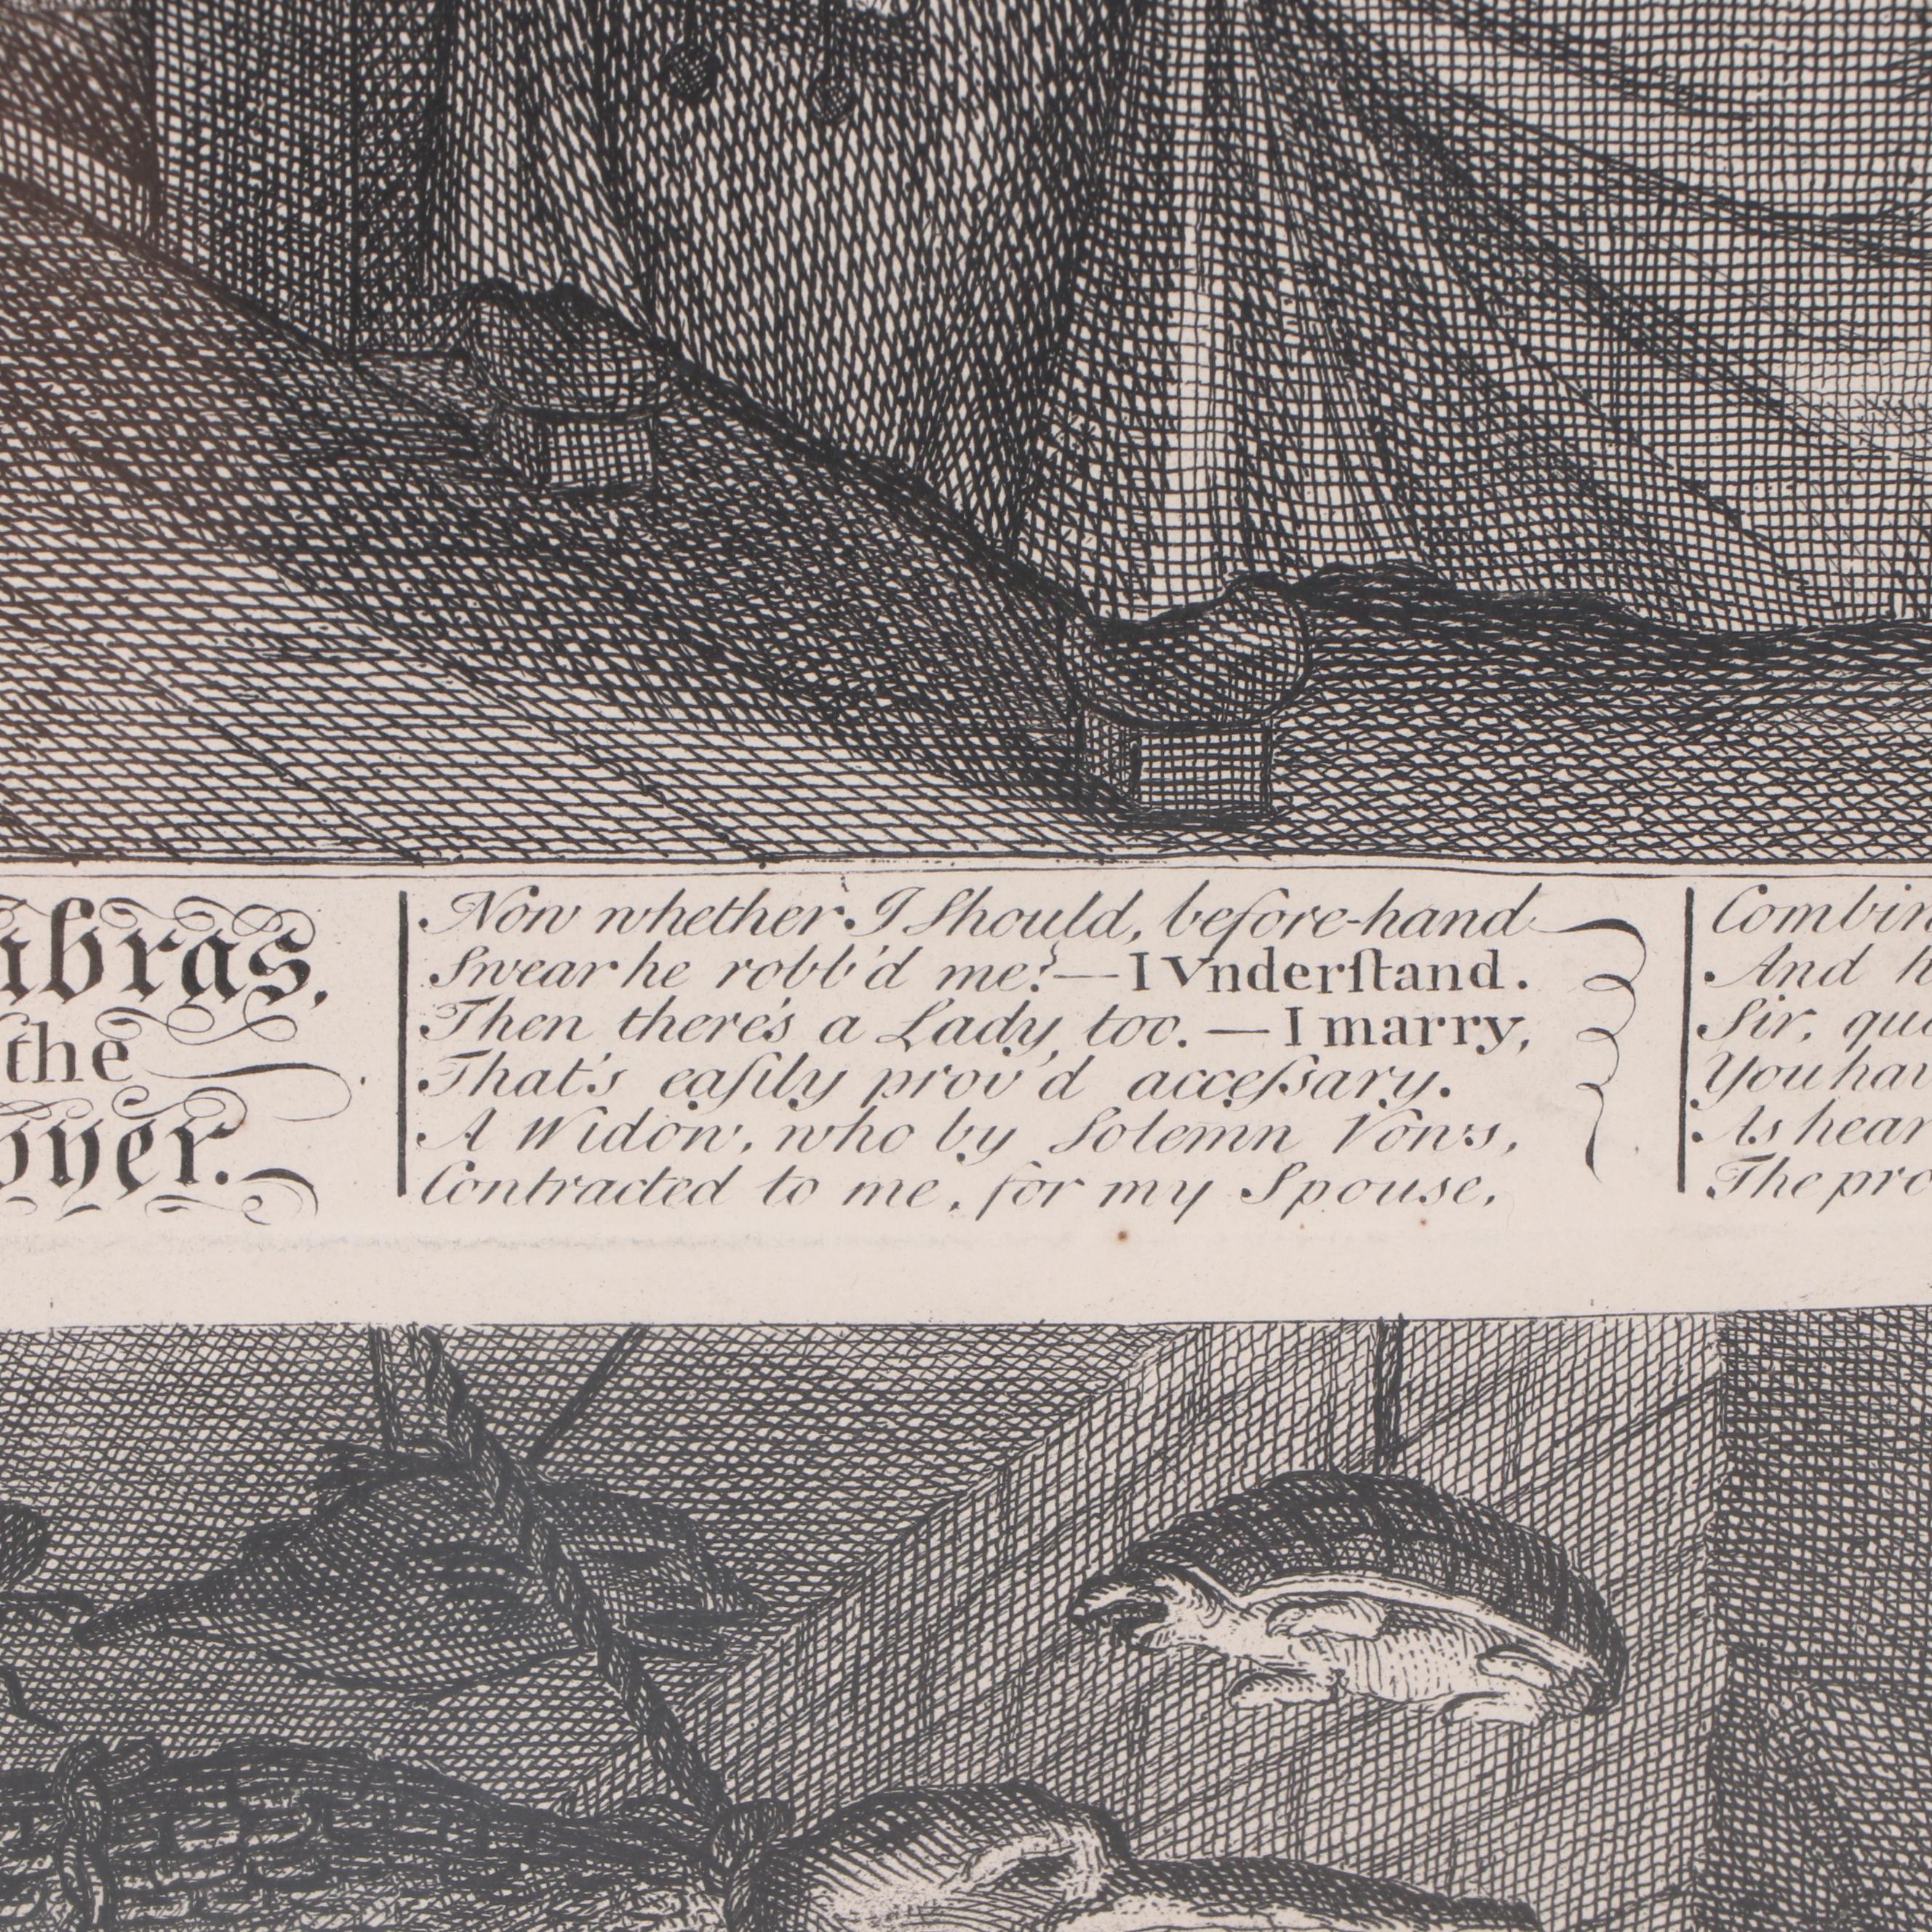 ubras,
the
oyer.
Now whether I Should, before-hand
Swear he robb'd me?—I Vnderſtand.
Then there's a Lady too.—I marry,
That's eaſily prov'd acceſsary.
A Widow, who by Solemn Vows,
Contracted to me, for my Spouse,
Combin
And h
Sir, qu
You hav
As hear
The pro